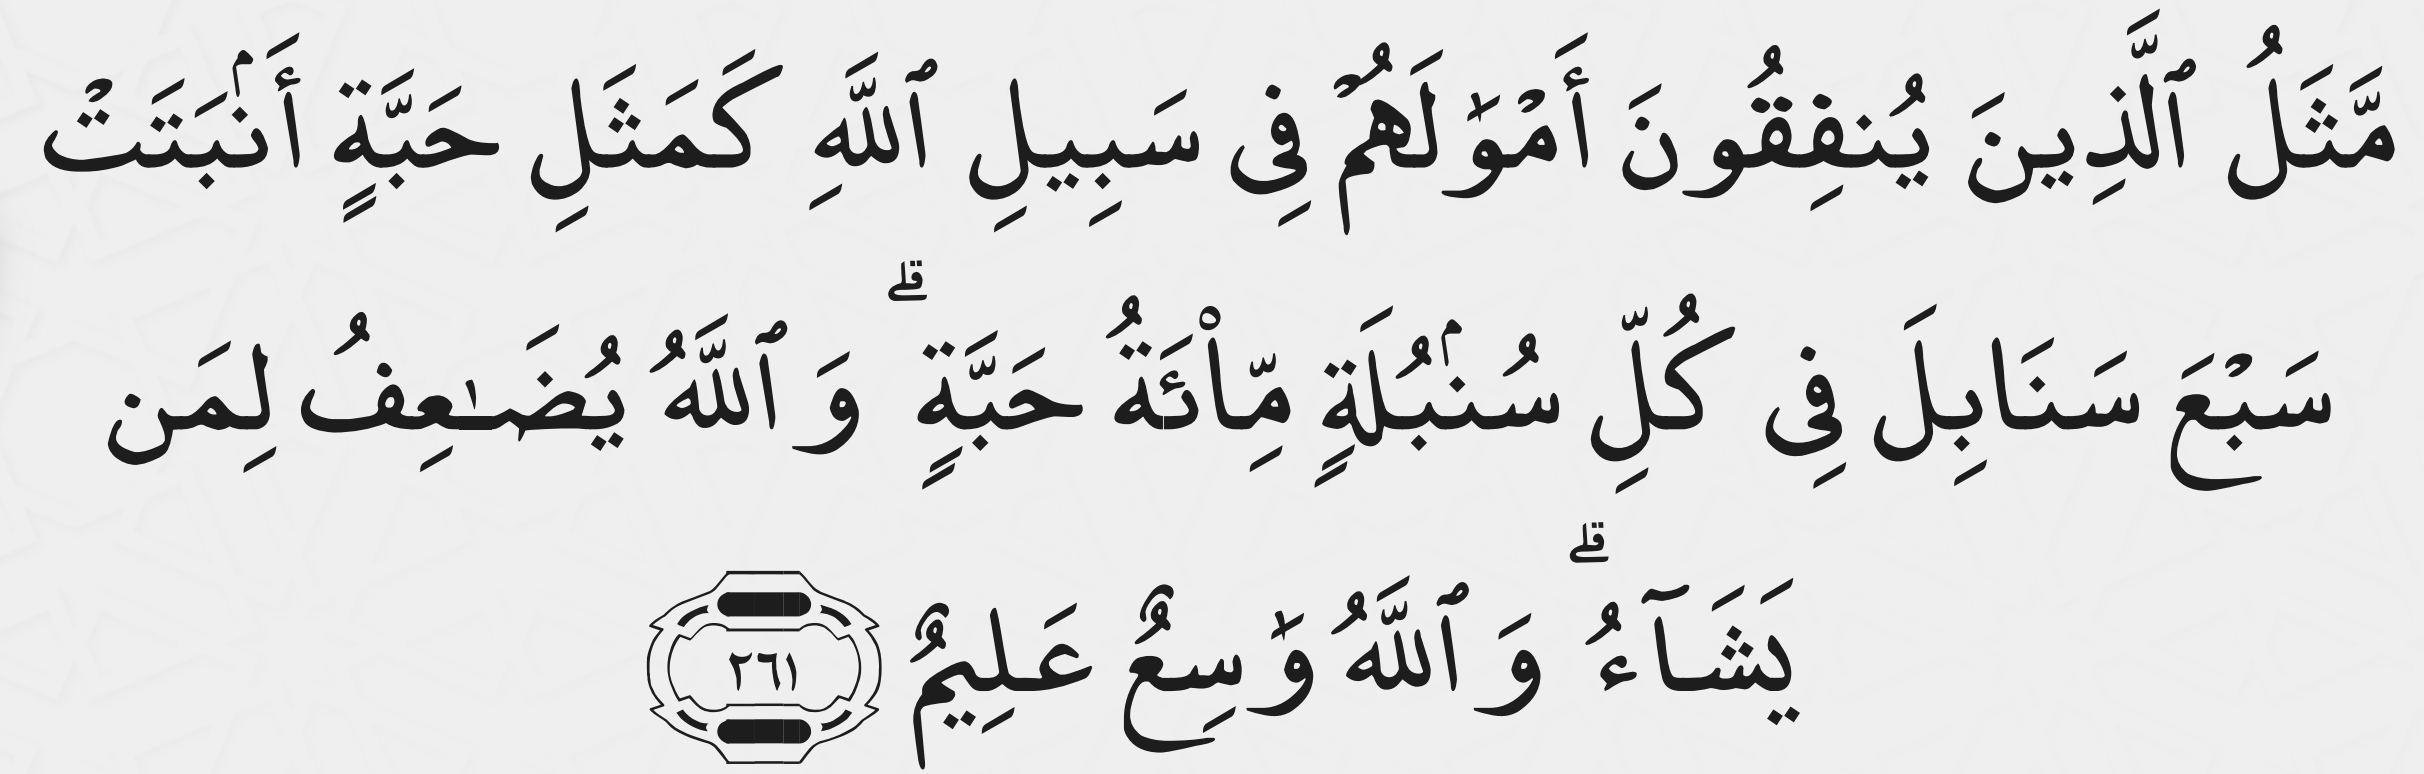 مَّثَلُ ٱلَّذِينَ يُنفِقُونَ أَمْوَٰلَهُمْ فِى سَبِيلِ ٱللَّهِ كَمَثَلِ حَبَّةٍ أَنۢبَتَتْ
سَبْعَ سَنَابِلَ فِى كُلِّ سُنۢبُلَةٍ مِّا۟ئَةُ حَبَّةٍ ۗ وَٱللَّهُ يُضَـٰعِفُ لِمَن
يَشَآءُ ۗ وَٱللَّهُ وَٰسِعٌ عَلِيمٌ ٢٦١